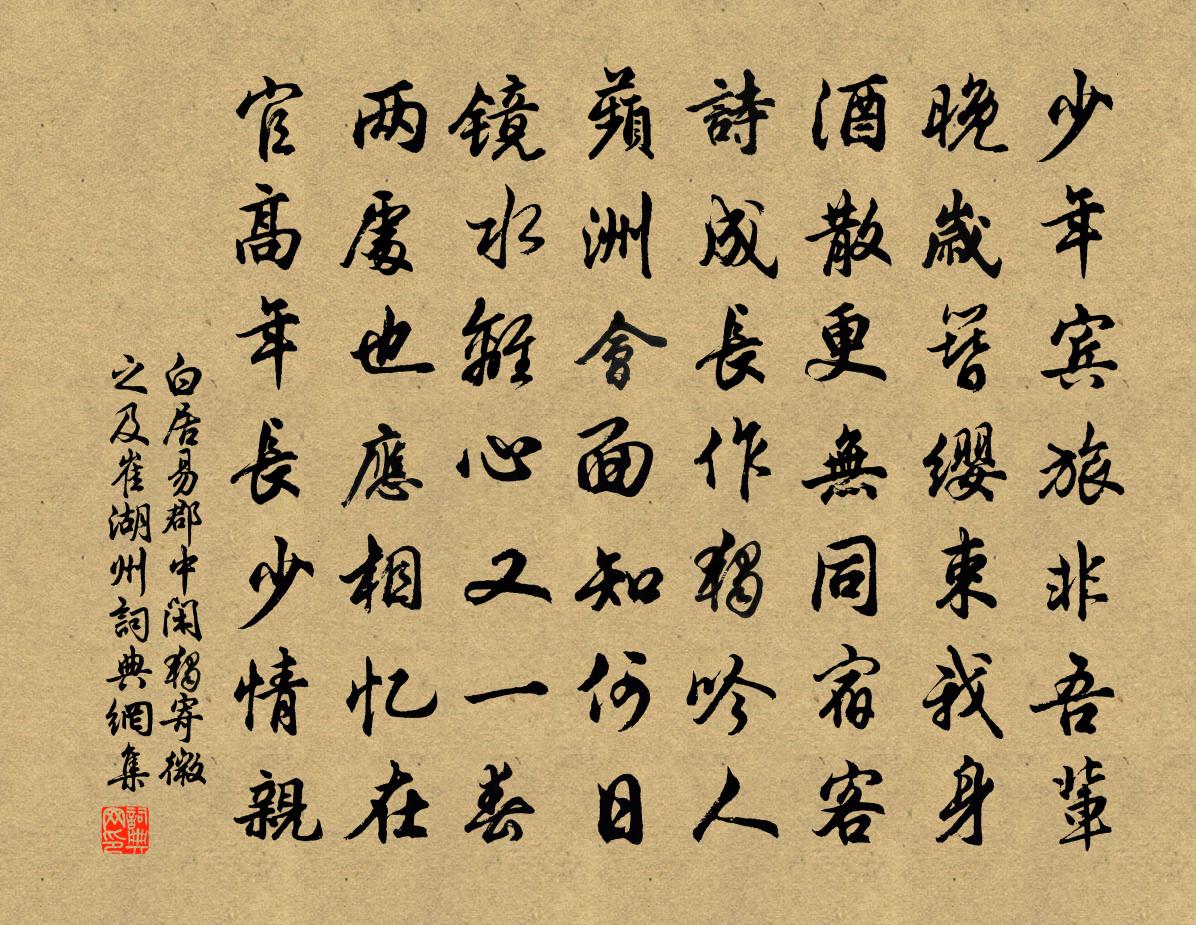 少年宾旅非吾輩
晚歲簪缨束我身
酒散更無同宿客
詩成長作獨吟人
蘋洲會面知何日
镜水離心又一春
两處也應相忆在
官高年長少情親
白居易郡中闲獨寄微
之及崔湖州詞典網集
詞典
网印